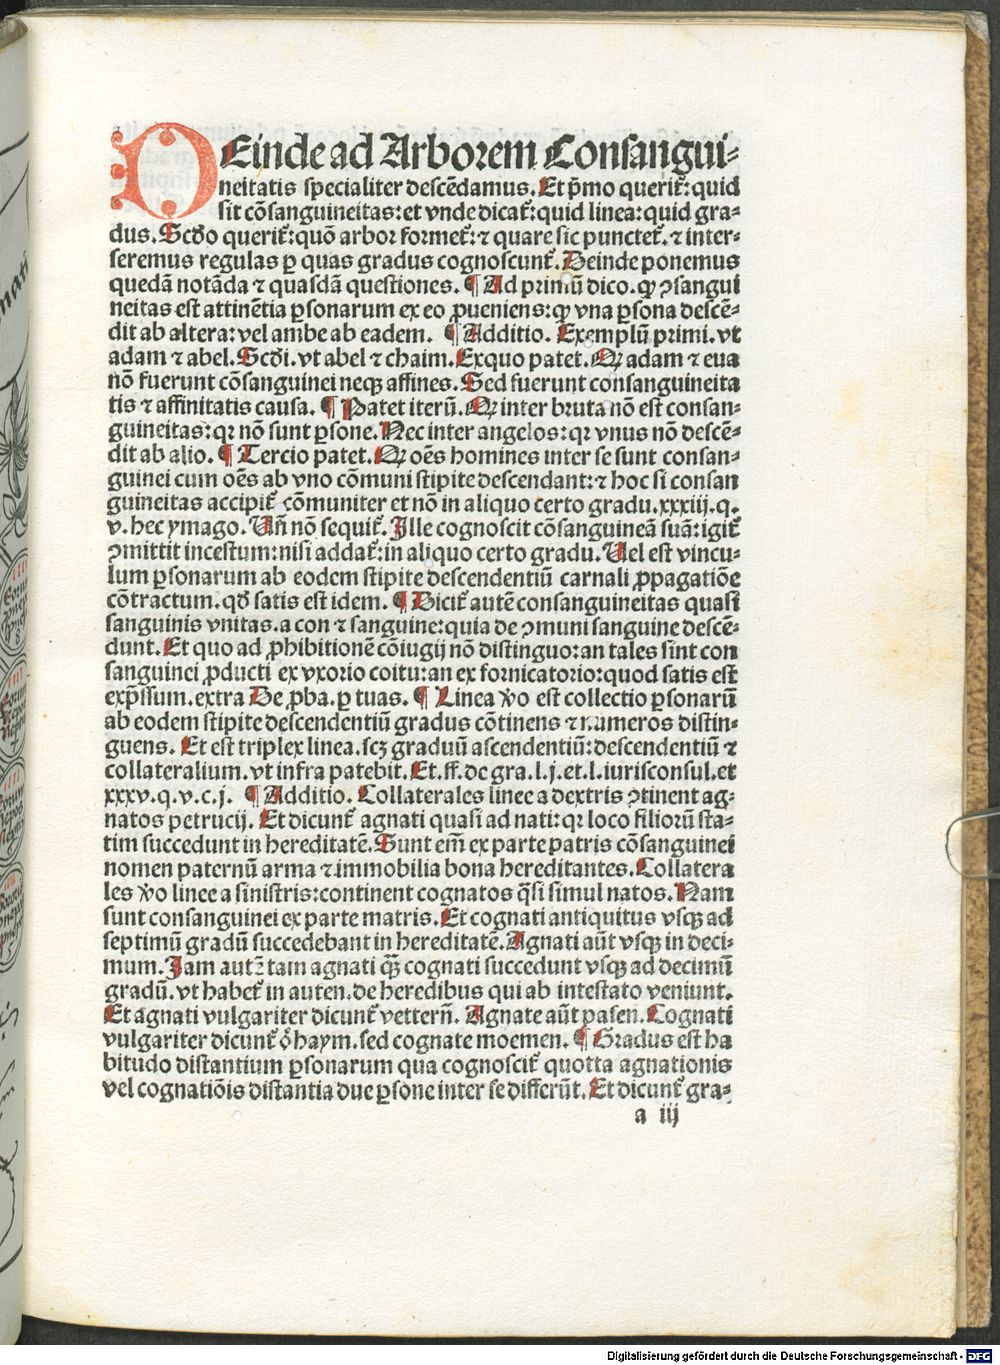 DEinde ad Arborem Consangui⸗
neitatis specialiter descēdamus. Et p̄mo querit᷑: quid
sit cōsanguineitas: et vnde dicat᷑: quid linea: quid gra⸗
dus. Scd̄o querit᷑: quō arbor formet᷑: ⁊ quare sic punctet᷑. ⁊ inter⸗
seremus regulas ꝑ quas gradus cognoscunt᷑. Deinde ponemus
quedā notāda ⁊ quasdā questiones. ¶ Ad primū dico. ꝙ ꝯsangui
neitas est attinētia ꝑsonarum ex eo ꝓueniens: ꝙ vna ꝑsona descē⸗
dit ab altera: vel ambe ab eadem. ¶ Additio. Exemplū primi. vt
adam ⁊ abel. Scd̄i. vt abel ⁊ chaim. Exquo patet. Qꝛ adam ⁊ eua
nō fuerunt cōsanguinei neqꝫ affines. Sed fuerunt consanguineita
tis ⁊ affinitatis causa. ¶ Patet iterū. Qꝛ inter bruta nō est consan⸗
guineitas: qꝛ nō sunt ꝑsone. Nec inter angelos: qꝛ vnus nō descē⸗
dit ab alio. ¶ Tercio patet. Qꝛ oēs homines inter se sunt consan⸗
guinei cum oēs ab vno cōmuni stipite descendant: ⁊ hoc si consan
guineitas accipit᷑ cōmuniter et nō in aliquo certo gradu. xxxiij. q.
v. hec ymago. Uñ nō sequit᷑. Ille cognoscit cōsanguineā suā: igit᷑
ꝯmittit incestum: nisi addat᷑: in aliquo certo gradu. Uel est vincu⸗
lum ꝑsonarum ab eodem stipite descendentiū carnali ꝓpagatiōe
cōtractum. qd̄ satis est idem. ¶ Dicit᷑ autē consanguineitas quasi
sanguinis vnitas. a con ⁊ sanguine: quia de ꝯmuni sanguine descē⸗
dunt. Et quo ad ꝓhibitionē cōiugij nō distinguo: an tales sint con
sanguinei ꝓducti ex vxorio coitu: an ex fornicatorio: quod satis est
exp̄ssum. extra De ꝓba. ꝑ tuas. ¶ Linea v̊o est collectio ꝑsonarū
ab eodem stipite descendentiū gradus cōtinens ⁊ numeros distin⸗
guens. Et est triplex linea. scꝫ graduū ascendentiū: descendentiū ⁊
collateralium. vt infra patebit. Et. ff. de gra. l. j. et. l. iurisconsul. et
xxxv. q. v. c. j. ¶ Additio. Collaterales linee a dextris ꝯtinent ag⸗
natos petrucij. Et dicunt᷑ agnati quasi ad nati: qꝛ loco filiorū sta⸗
tim succedunt in hereditatē. Sunt em̄ ex parte patris cōsanguinei
nomen paternū arma ⁊ immobilia bona hereditantes. Collatera
les v̊o linee a sinistris: continent cognatos q̄si simul natos. Nam
sunt consanguinei ex parte matris. Et cognati antiquitus vsqꝫ ad
septimū gradū succedebant in hereditatē. Agnati aūt vsqꝫ in deci⸗
mum. Iam autꝫ tam agnati qꝫ̄ cognati succedunt vsqꝫ ad decimū
gradū. vt habet᷑ in auten. de heredibus qui ab intestato veniunt.
Et agnati vulgariter dicunt᷑ vettern̄. Agnate aūt pasen. Cognati
vulgariter dicunt᷑ ŏhaym. sed cognate moemen. ¶ Gradus est ha
bitudo distantium ꝑsonarum qua cognoscit᷑ quotta agnationis
vel cognatiōis distantia due ꝑsone inter se differūt. Et dicunt᷑ gra⸗
a iij
Digitalisierung gefördert durch die Deutsche Forschungsgemeinschaft - DFG